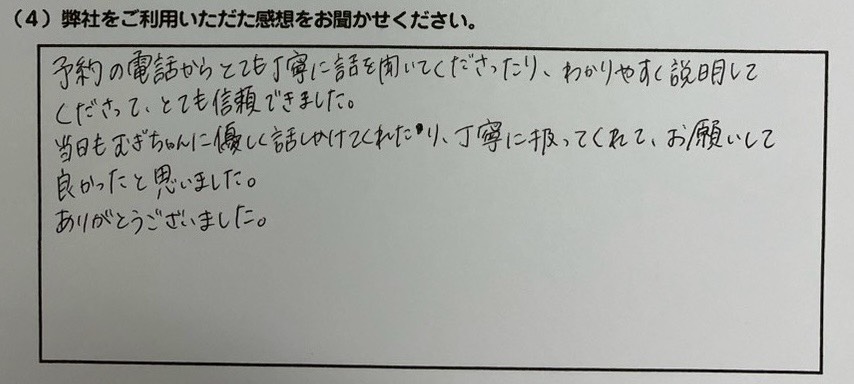 （4）弊社をご利用いただた感想をお聞かせください。
予約の電話からとても丁寧に話を聞いてくださったり、わかりやすく説明して
くださって、とても信頼できました。
当日もむぎちゃんに優しく話しかけてくれたり、丁寧に扱ってくれて、お願いして
良かったと思いました。
ありがとうございました。